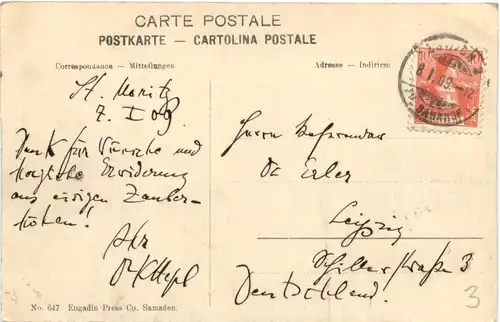 CARTE POSTALE
POSTKARTE — CARTOLINA POSTALE
Correspondance — Mitteilungen
Adresse — Indirizzo
St. Moritz
7. I 09
Dank für Wünsche und
herzliche Erwiderung
aus eisigen Zauber-
höhen!
Ihr
Herrn Referendar
Dr Erler
Leipzig
Schillerstraße 3
Deutschland.
3
10
8.I.09.
No. 647 Engadin Press Co. Samaden.